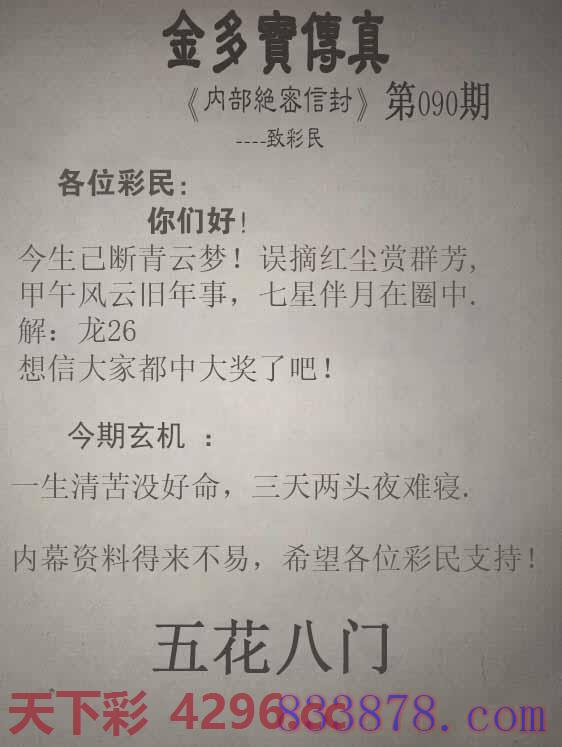 金多寶傳真
《内部絶密信封》第090期
----致彩民
各位彩民:
你们好!
今生已断青云梦! 误摘红尘赏群芳,
甲午风云旧年事，七星伴月在圈中.
解：龙26
想信大家都中大奖了吧!
今期玄机 ：
一生清苦没好命，三天两头夜难寝.
内幕资料得来不易，希望各位彩民支持!
五花八门
天下彩 4296.cc
883878.com